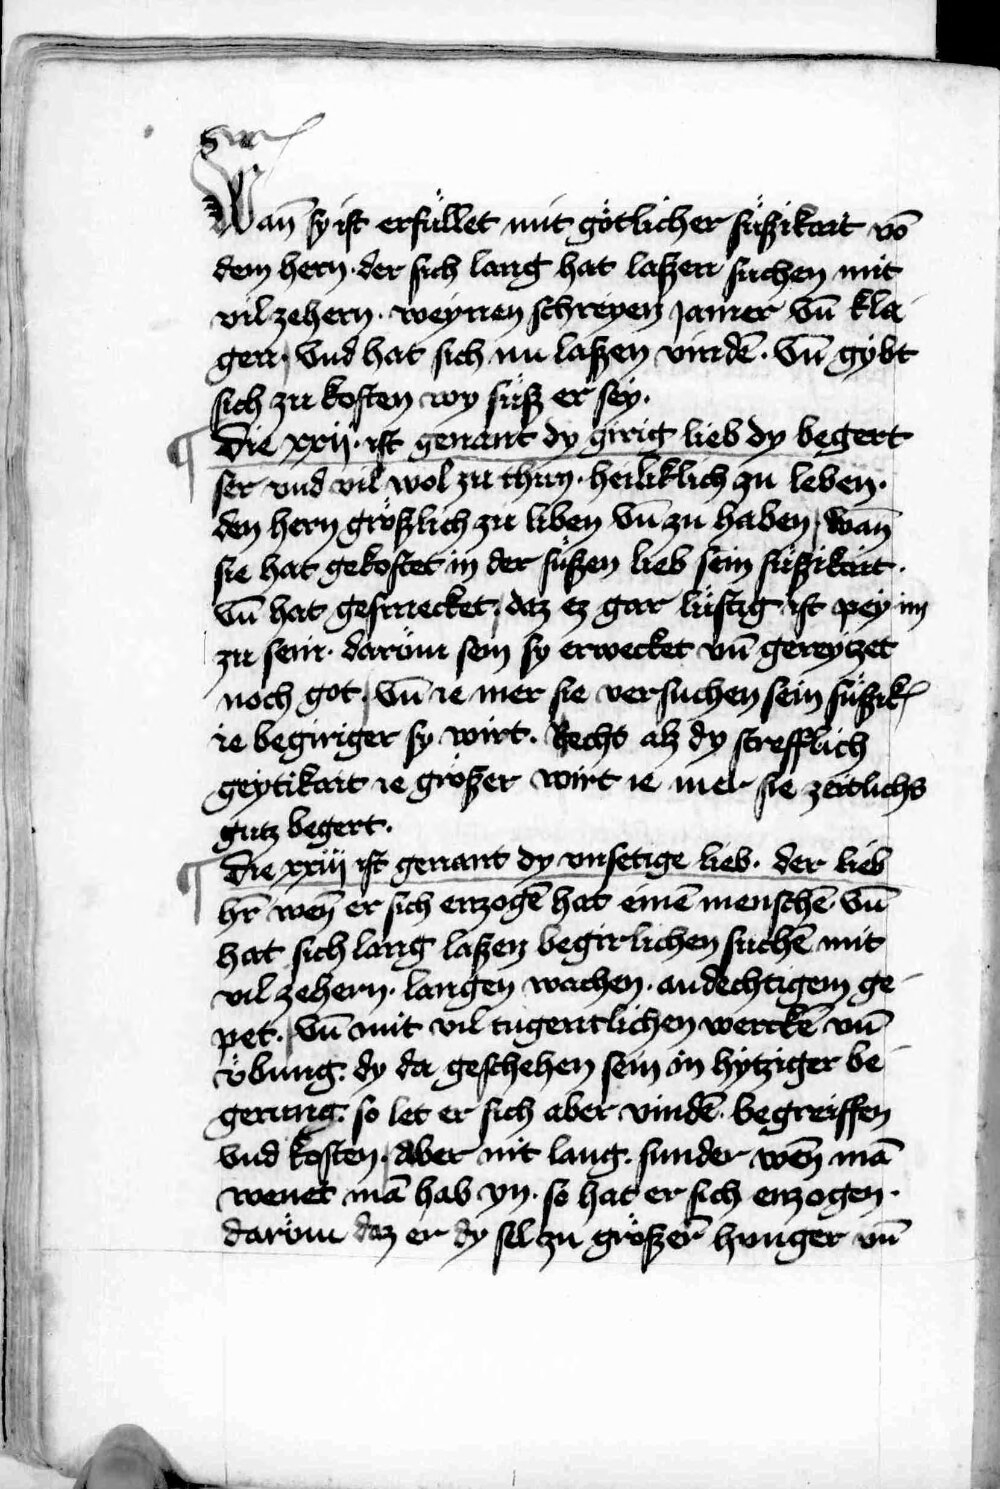 Wan̄ sy ist erfüllet mit götlicher süßikait vō
dem hern · der sich lang hat laßen suchen mit
vil zehern · weynen schreyen jamer vn̄ kla
gen · vnd hat sich nu laßen vindē · vn̄ gybt
sich zu kosten wy süß er sey ·
Die xxij · ist genant dy girig lieb dy begert
ser vnd vil wol zu thun · heiliklich zu leben ·
den hern größlich zu liben vn̄ zu haben · wan̄
sie hat gekostet in der süßen lieb sein süßikait ·
vn̄ hat gesmecket · daz ez gar lüstig ist pey im
zu sein · darüm sein sy erwecket vn̄ gereyczet
noch got · vn̄ ie mer sie versuchen sein süßik
ie begiriger sy wirt · Recht alz dy strefflich
geytikait ie größer wirt ie mer sie zeitlichs
gutz begert ·
Die xxiij ist genant dy vnsetige lieb · der lieb
hr̄ wen̄ er sich enzogē hat einē menschē vn̄
hat sich lang laßen begirlichen suchē mit
vil zehern · langen wachen · andechtigem ge
pet · vn̄ mit vil tugentlichen werckē vn̄
übung · dy da geschehen sein in hytziger be
gerung · so let er sich aber vindē · begreiffen
vnd kosten · Aber nit lang · sunder wen̄ mā
wenet mā hab yn · so hat er sich enzogen ·
darüm daz er dy sel zu größer̄ hunger vn̄